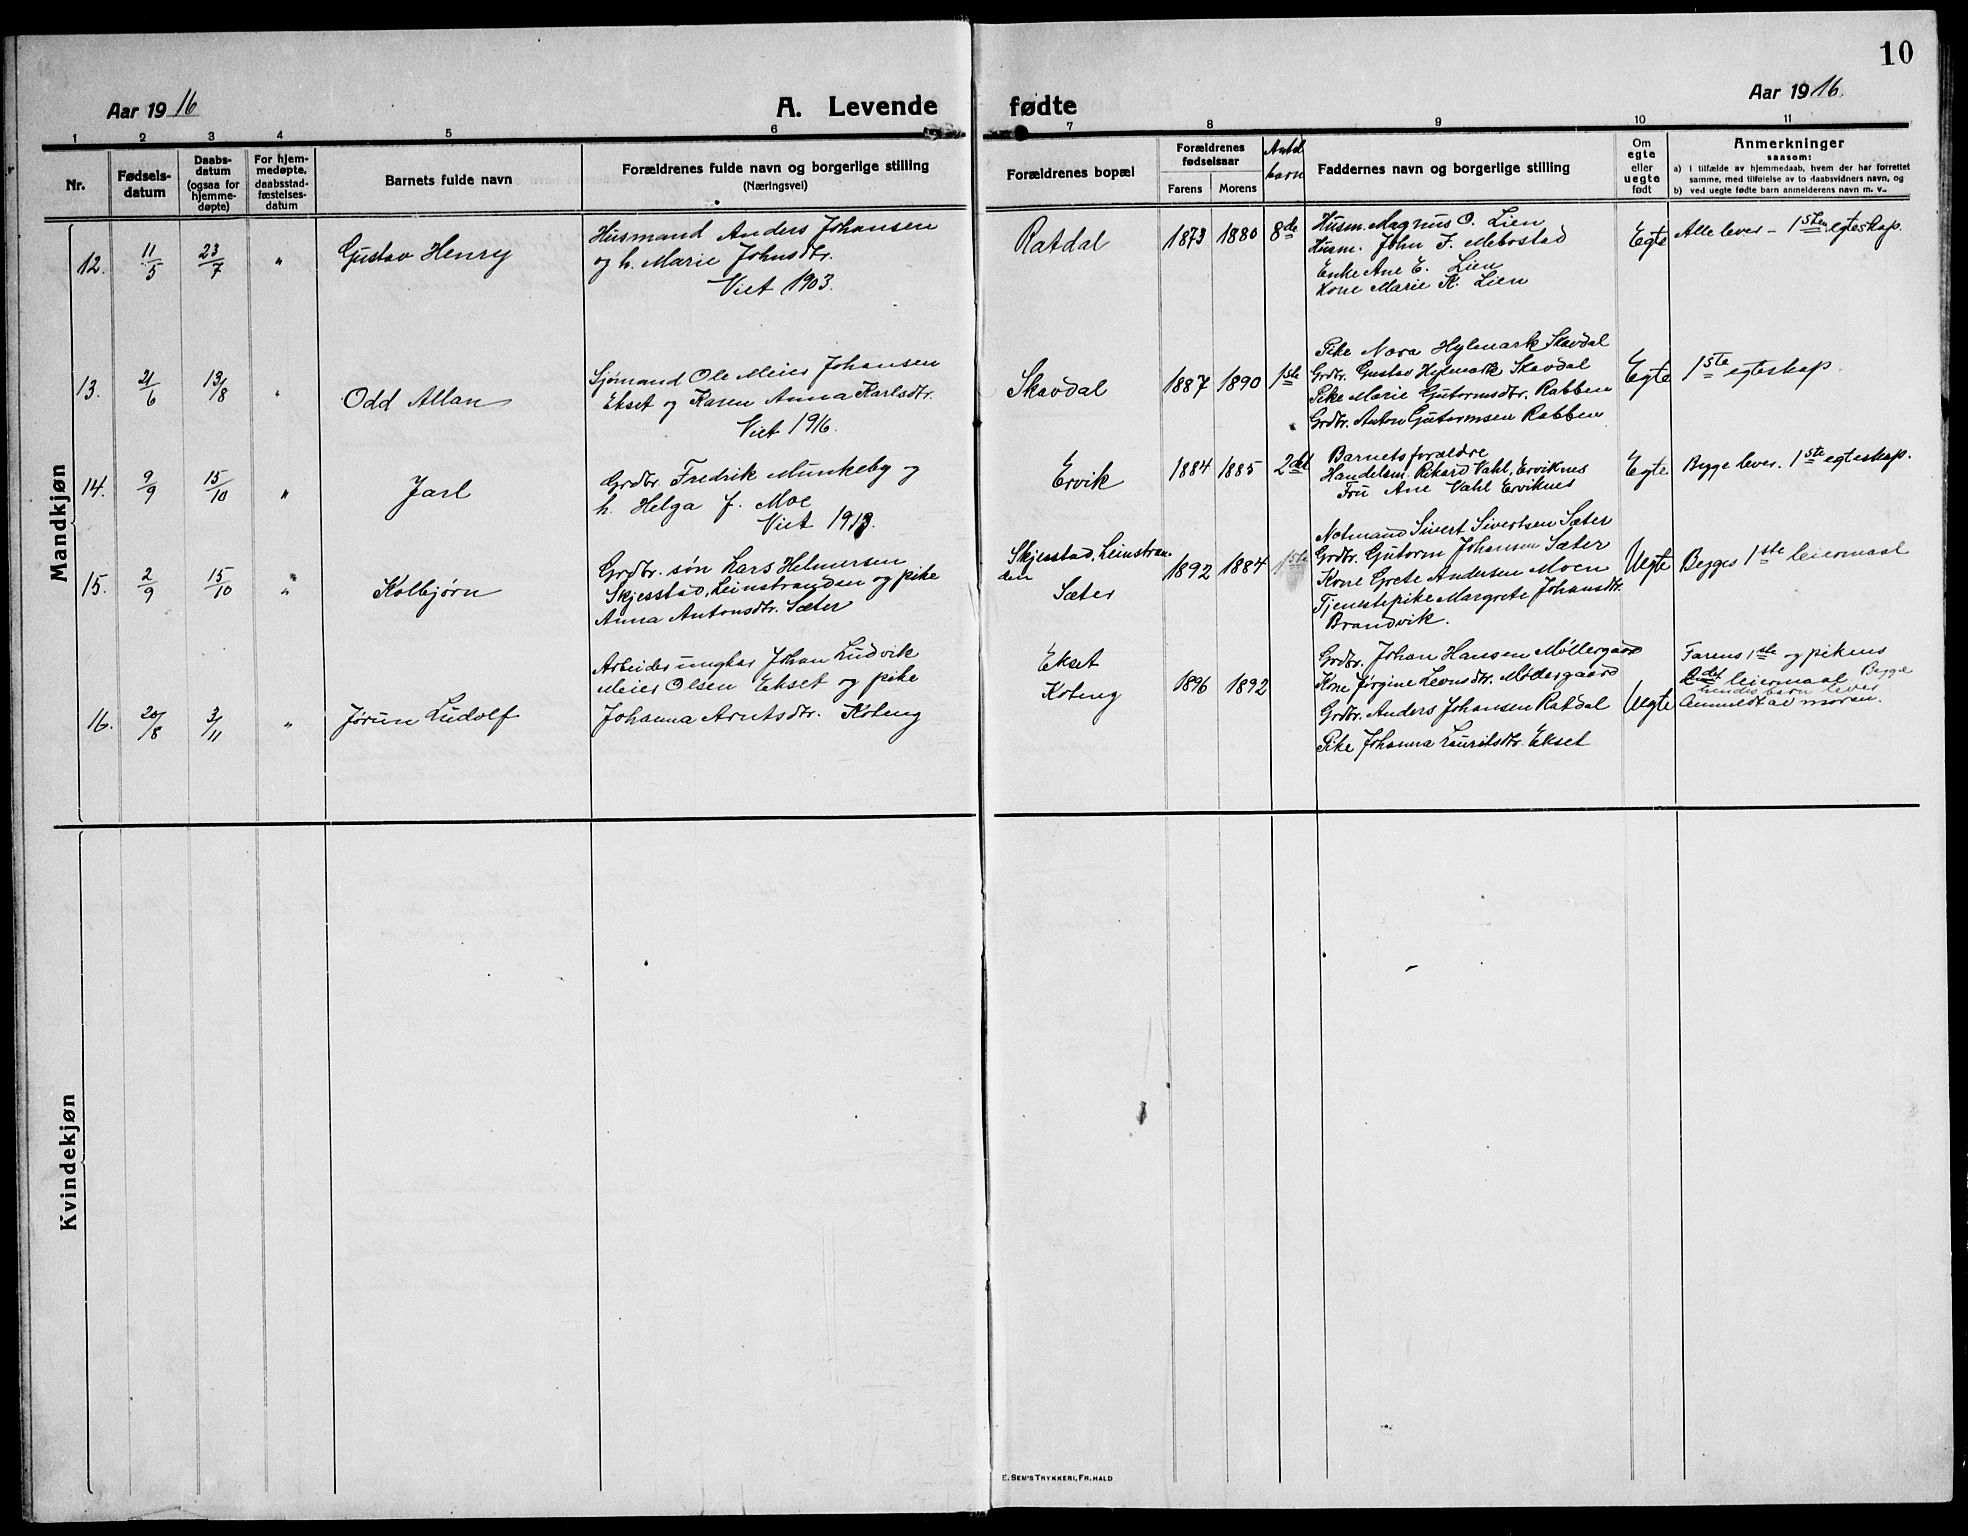 10
Aar 1916
A. Levende fødte
Aar 1916.
1 2 3 4 5 6 7 8 9 10 11
Nr.
Fødsels-
datum
Daabs-
datum
(ogsaa for
hjemme-
døpte)
For hjem-
medøpte,
daabsstad-
fæstelses-
datum
Barnets fulde navn
Forældrenes fulde navn og borgerlige stilling
(Næringsvei)
Forældrenes bopæl
Forældrenes
fødselsaar
Farens Morens
Antal
barn
Faddernes navn og borgerlige stilling
Om
egte
eller
uegte
født
Anmerkninger
saasom:
a) i tilfælde av hjemmedaab, hvem der har forrettet
samme, med tilføielse av to daabsvidners navn, og
b) ved uegte fødte barn anmelderens navn m. v..
Mandkjøn
12. 11/5 23/7 "
Gustav Henry
Husmand Anders Johansen
og h. Marie Johnsdtr.
Viet 1903.
Ratdal
1873 1880 8de
Husm. Magnus O. Lien
Husm. John J. Mebostad
Enke Ane E. Lien
Kone Marie K. Lien
Egte
Alle lever – 1sten egteskap.
13. 21/6 13/8 "
Odd Allan
Sjømand Ole Meier Johansen
Ekset og Karen Anna Karlsdtr.
Viet 1916.
Skavdal
1887 1890 1ste
Pike Nora Hylmark Skavdal
Grdbr. Gustav Hylmark Skavdal
Pike Marie Gutormsdtr. Rabben
Grdbr. Anton Gutormsen Rabben
Egte
1ste egteskap.
14. 9/9 15/10 "
Jarl
Grdbr. Fredrik Munkeby og
h. Helga f. Moe
Viet 1913.
Ervik
1884 1885 2det
Barnets forældre
Handelsm. Rikard Vahl, Erviknes
Fru Ane Vahl Erviknes
Egte
Begge lever. 1ste egteskap.
15. 2/9 15/10 "
Kolbjørn
Grdbr. søn Lars Helmersen
Skjesstad, Leinstranden og pike
Anna Antonsdtr. Sæter
Skjesstad, Leinstran-
den
Sæter
1892 1884 1ste
Notmand Sivert Sivertsen Sæter
Grdbr. Gutorm Johansen Sæter
Kone Grete Andersen Moen
Tjenestepike Margrete Johansdtr.
Brandvik.
Uegte
Begges 1ste leiermaal
16. 20/8 3/11 "
Jørun Ludolf
Arbeider ungkar Johan Ludvik
Meier Olsen Ekset og pike
Johanna Arntsdtr. Koteng
Ekset
Koteng
1896 1892
Grdbr. Johan Hansen Møllergaard
Kone Jørgine Leonsdtr. Møllergaard
Grdbr. Anders Johansen Ratdal
Pike Johanna Lauritsdtr. Ekset
Uegte
Farens 1ste og pikens
2det leiermaal Begge
hendes barn lever
Anmeldt av moren.
Kvindekjøn
E. Sem's Trykkeri, Fr.hald